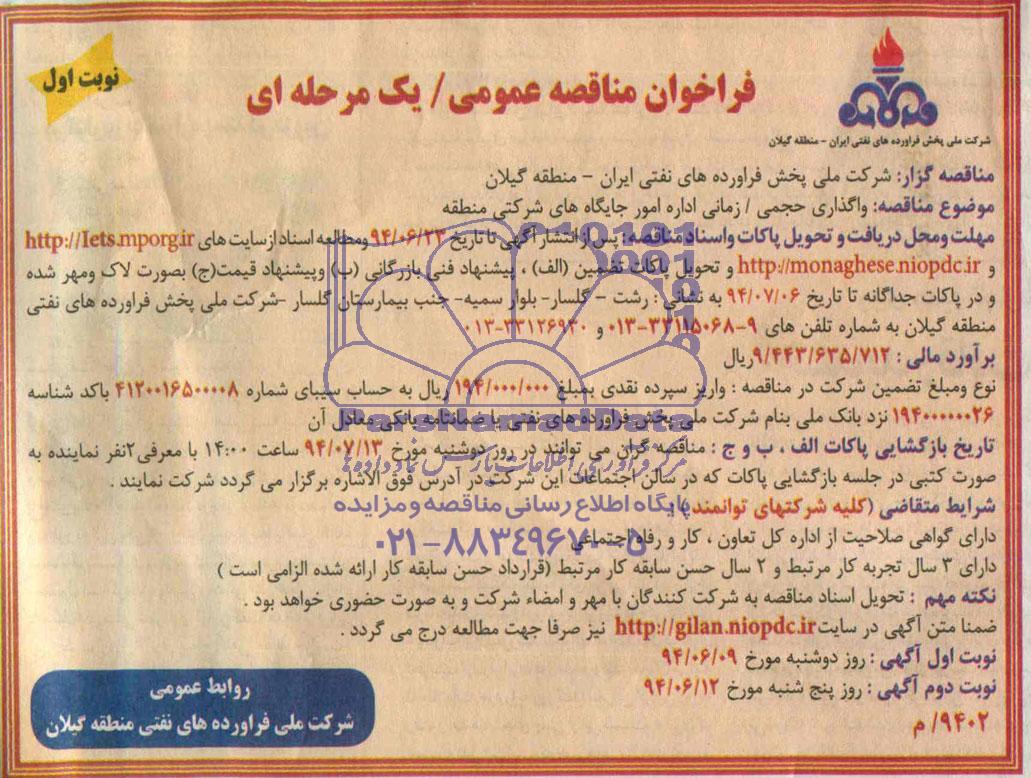 نوبت اول
فراخوان مناقصه عمومی / یک مرحله ای
شرکت ملی پخش فراورده های نفتی ایران - منطقه گیلان
مناقصه گزار: شرکت ملی پخش فراورده های نفتی ایران - منطقه گیلان
موضوع مناقصه: واگذاری حجمی / زمانی اداره امور جایگاه های شرکتی منطقه
مهلت ومحل دریافت و تحویل پاکات واسناد مناقصه: پس از انتشار آگهی تا تاریخ ۹۴/۰۶/۲۳ ومطالعه اسناد از سایت های http://Iets.mporg.ir
و http://monaghese.niopdc.ir و تحویل پاکات تضمین (الف) ، پیشنهاد فنی بازرگانی (ب) وپیشنهاد قیمت(ج) بصورت لاک ومهر شده
و در پاکات جداگانه تا تاریخ ۹۴/۰۷/۰۶ به نشانی : رشت - گلسار- بلوار سمیه- جنب بیمارستان گلسار -شرکت ملی پخش فراورده های نفتی
منطقه گیلان به شماره تلفن های ۹-۳۳۱۱۵۰۶۸-۰۱۳ و ۳۳۱۲۶۹۳۰-۰۱۳
برآورد مالی : ۹/۴۴۳/۶۳۵/۷۱۲ریال
نوع ومبلغ تضمین شرکت در مناقصه : واریز سپرده نقدی بمبلغ ۱۹۴/۰۰۰/۰۰۰ ریال به حساب سیبای شماره ۴۱۲۰۰۱۶۵۰۰۰۰۸ باکد شناسه
۱۹۴۰۰۰۰۰۰۲۶ نزد بانک ملی بنام شرکت ملی پخش فرآورده های نفتی یا ضمانتنامه بانکی معادل آن
تاریخ بازگشایی پاکات الف ، ب و ج : مناقصه گران می توانند در روز دوشنبه مورخ ۹۴/۰۷/۱۳ ساعت ۱۴:۰۰ با معرفی۲نفر نماینده به
صورت کتبی در جلسه بازگشایی پاکات که در سالن اجتماعات این شرکت در آدرس فوق الاشاره برگزار می گردد شرکت نمایند .
شرایط متقاضی (کلیه شرکتهای توانمند) :
پایگاه اطلاع رسانی مناقصه و مزایده
دارای گواهی صلاحیت از اداره کل تعاون ، کار و رفاه اجتماعی
۰۲۱-۸۸۳۴۹۶۷۰-۵
دارای ۳ سال تجربه کار مرتبط و ۲ سال حسن سابقه کار مرتبط (قرارداد حسن سابقه کار ارائه شده الزامی است )
نکته مهم : تحویل اسناد مناقصه به شرکت کنندگان با مهر و امضاء شرکت و به صورت حضوری خواهد بود .
ضمنا متن آگهی در سایت http://gilan.niopdc.ir نیز صرفا جهت مطالعه درج می گردد .
نوبت اول آگهی : روز دوشنبه مورخ ۹۴/۰۶/۰۹
نوبت دوم آگهی : روز پنج شنبه مورخ ۹۴/۰۶/۱۲
۹۴۰۲/ م
روابط عمومی
شرکت ملی فراورده های نفتی منطقه گیلان